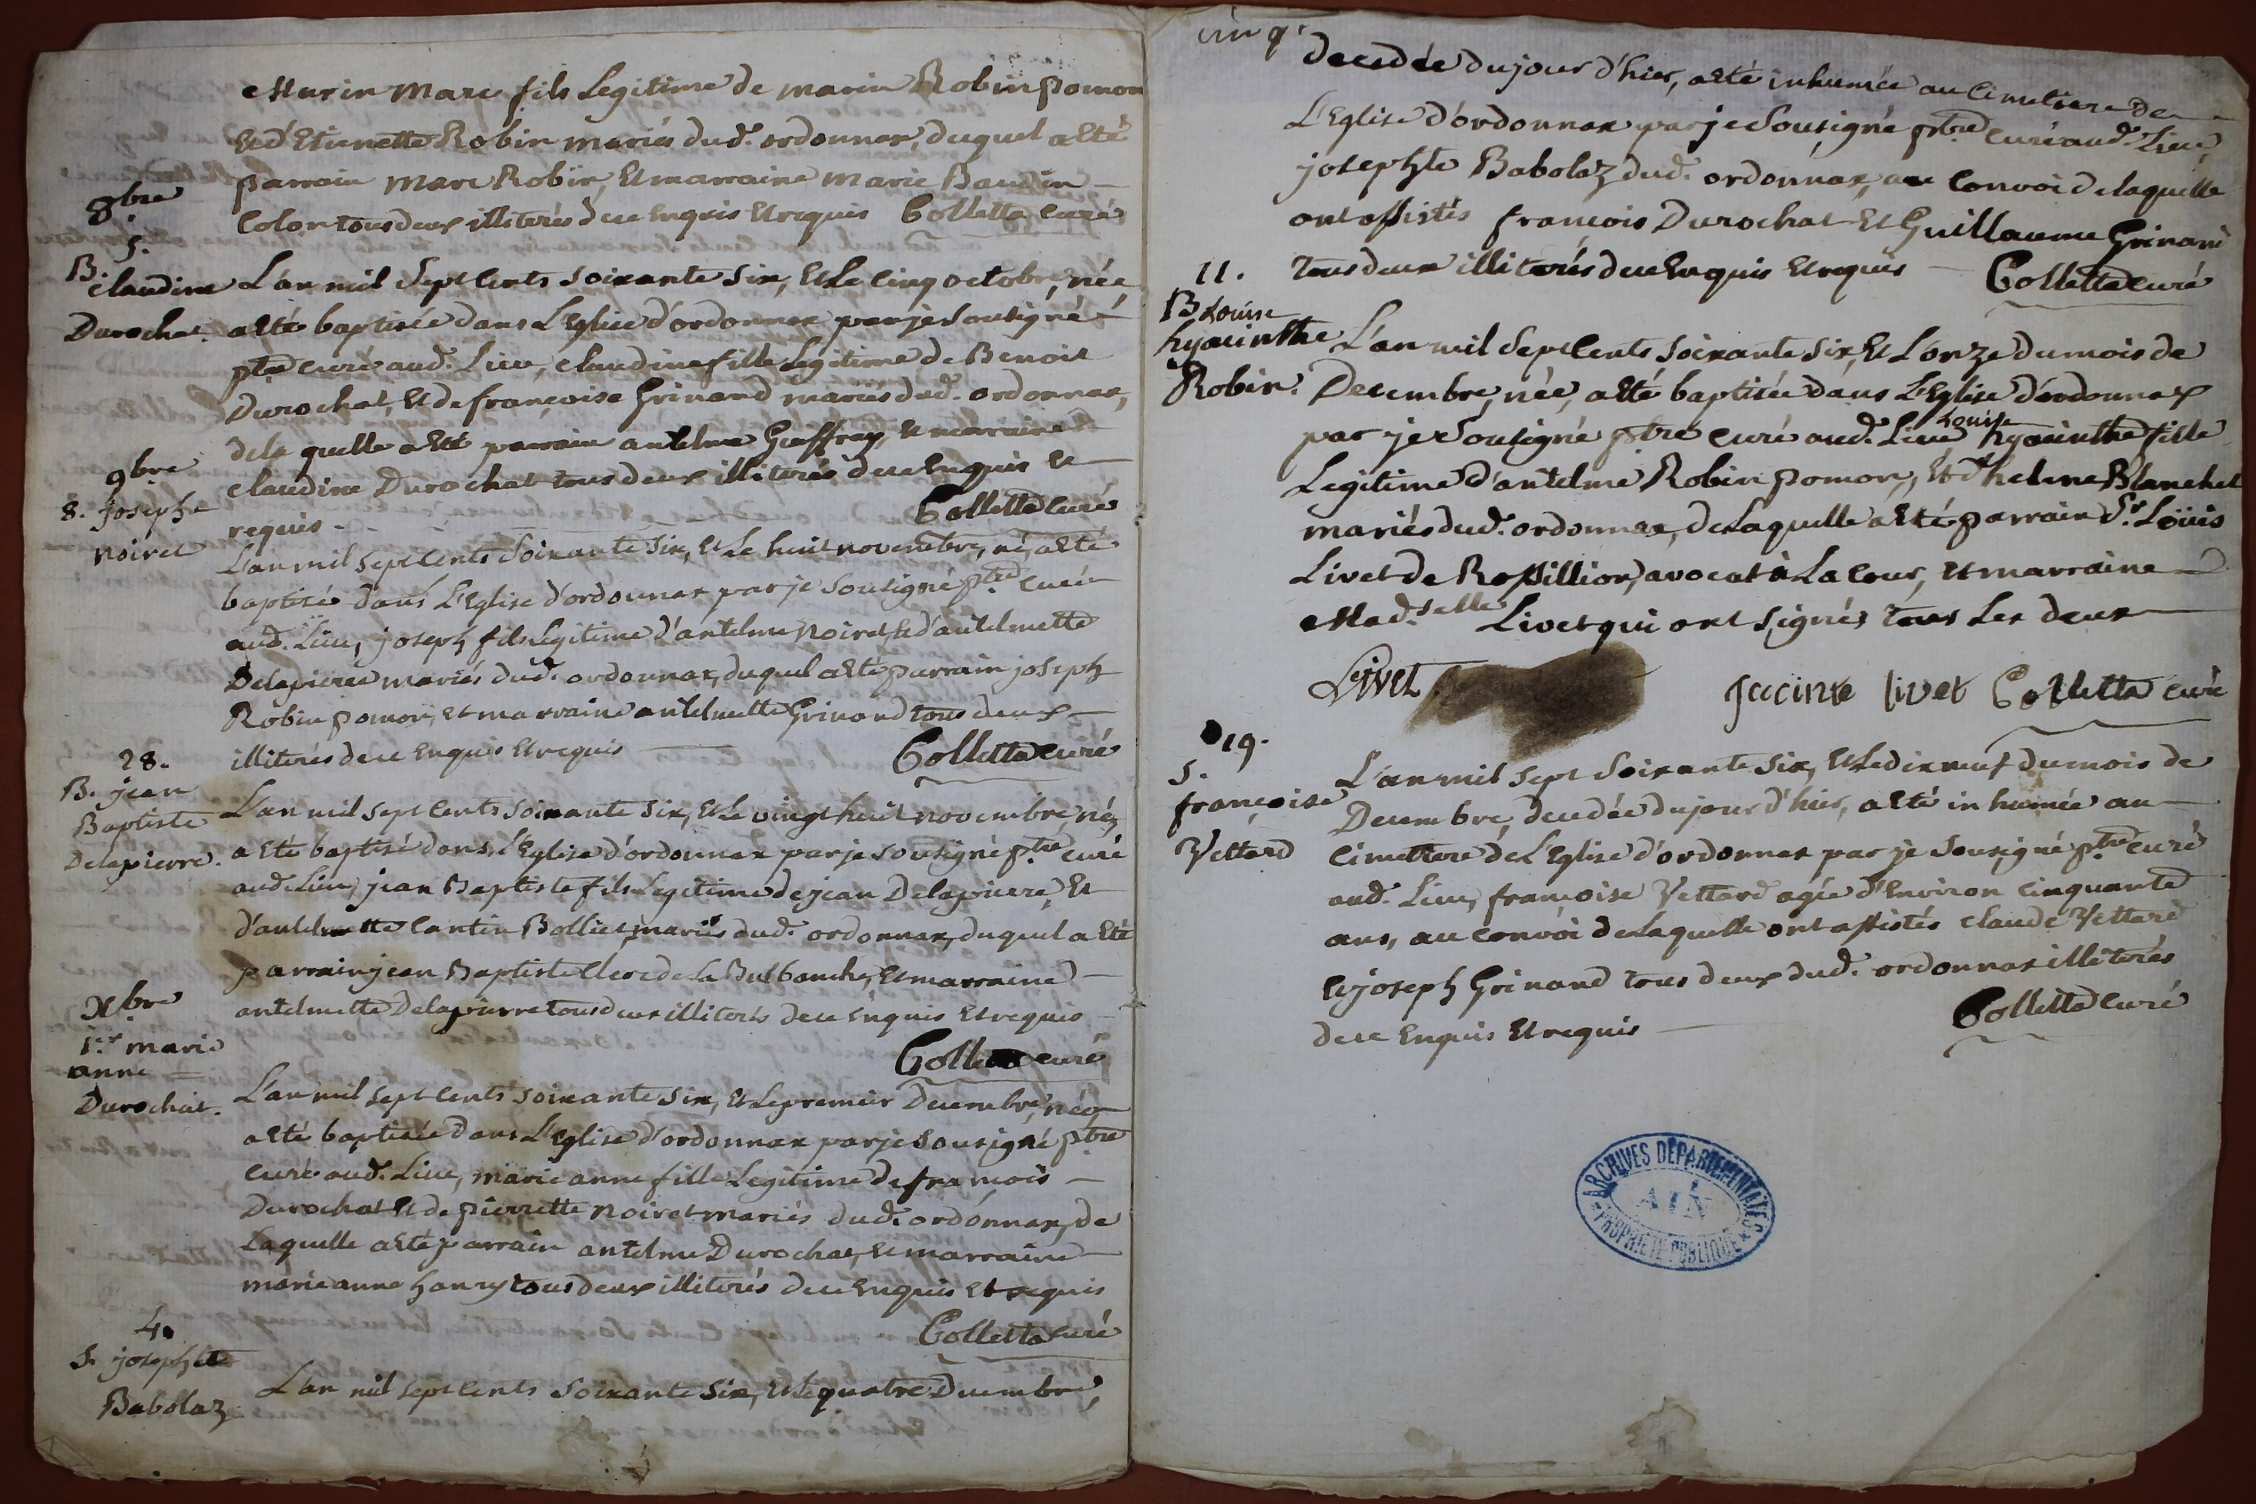 Marin Marc fils Legitime de marin Robin pomon
Et d'Etienette Robin mariés dud. ordonnax, duquel a Eté
parrain Marc Robin, Et marraine Marie Baudin
Colon tous deux illiterés de ce Enquis Et requis Colletta curé
8bre
5.
B. claudine
Durochat.
L'an mil Sept Cents Soixante Six, Et Le Cinq octobre, née,
a Eté baptisée dans L'Eglise d'ordonnax par je Sousigné
ptre curé aud. Lieu, claudine fille Legitime de Benoit
Durochat, Et de françoise Grinand mariés dud. ordonnax,
de la quelle a Eté parrain antelme Geoffray, Et marraine
claudine Durochat tous deux illiterés de ce Enquis Et
requis Colletta Curé
9bre
8. joseph
noiret
L'an mil Sept Cents Soixante Six, Et Le huit novembre, né, a Eté
baptisé dans L'Eglise d'ordonnax par je Sousigné ptre curé
aud. Lieu, joseph fils Legitime d'antelme noiret Et d'antelmette
Delapierre mariés dud. ordonnax, duquel a Eté parrain joseph
Robin pomon, Et marraine antelmette Grinand tous deux
illiterés de ce Enquis Et requis Colletta curé
28.
B. jean
Baptiste
Delapierre.
L'an mil Sept Cents Soixante Six, Et Le vingt huit novembre, né,
a Eté baptisé dans L'Eglise d'ordonnax par je Sousigné ptre curé
aud. Lieu, jean Baptiste fils Legitime de jean Delapierre, Et
d'antelmette Cantin Bolliet mariés dud. ordonnax, duquel a Eté
parrain jean Baptiste de La Marraine
antelmette Delapierre tous deux illiterés de ce Enquis Et requis
Colletta curé
Xbre
1er marie
anne
Durochat.
L'an mil Sept Cents Soixante Six, Et Le premier Decembre, née
a Eté baptisée dans L'Eglise d'ordonnax par je Sousigné ptre
curé aud. Lieu, marie anne fille Legitime de françois
Durochat Et de pierrette noiret mariés dud. ordonnax, de
Laquelle a Eté parrain antelme Durochat, Et marraine
marie anne hanry tous deux illiterés de ce Enquis Et requis
Colletta curé
4.
S. josephte
Babolaz
L'an mil Sept Cents Soixante Six, Et Le quatre Decembre,
cinqe
decedée du jour d'hier, a Eté inhumée au Cimetiere de
L'Eglise d'ordonnax par je Sousigné ptre Curé aud. Lieu,
josephte Babolaz dud. ordonnax, au Convoi de laquelle
ont assistés françois Durochat Et Guillaume Grinand
tous deux illiterés de ce Enquis Et requis Colletta curé
11.
B Louise
hyacinthe
Robin.
L'an mil Sept Cents Soixante Six, Et L'onze du mois de
Decembre, née, a Eté baptisée dans L'Eglise d'ordonnax
par je Sousigné ptre curé aud. Lieu Louise hyacinthe fille
Legitime d'antelme Robin pomon, Et d'helene Blanchet
mariés dud. ordonnax, de Laquelle a Eté parrain Sr. Loüis
Livet de Rossillion, avocat à La Cour, Et marraine
Mad.selle Livet qui ont Signés tous Les deux
Livet Jacinte livet Colletta curé
19.
S.
françoise
Vettard
L'an mil Sept Soixante Six, Et Le dixneuf du mois de
Decembre, decedée du jour d'hier, a Eté inhumée au
Cimetiere de L'Eglise d'ordonnax par je Sousigné ptre curé
aud. Lieu, françoise Vettard agée d'Environ Cinquante
ans, au Convoi de Laquelle ont assistés claude Vettard
Et joseph Grinand tous deux dud. ordonnax illiterés
de ce Enquis Et requis Colletta Curé
ARCHIVES DEPARTEMENTALES
AIN
PROPRIETE PUBLIQUE